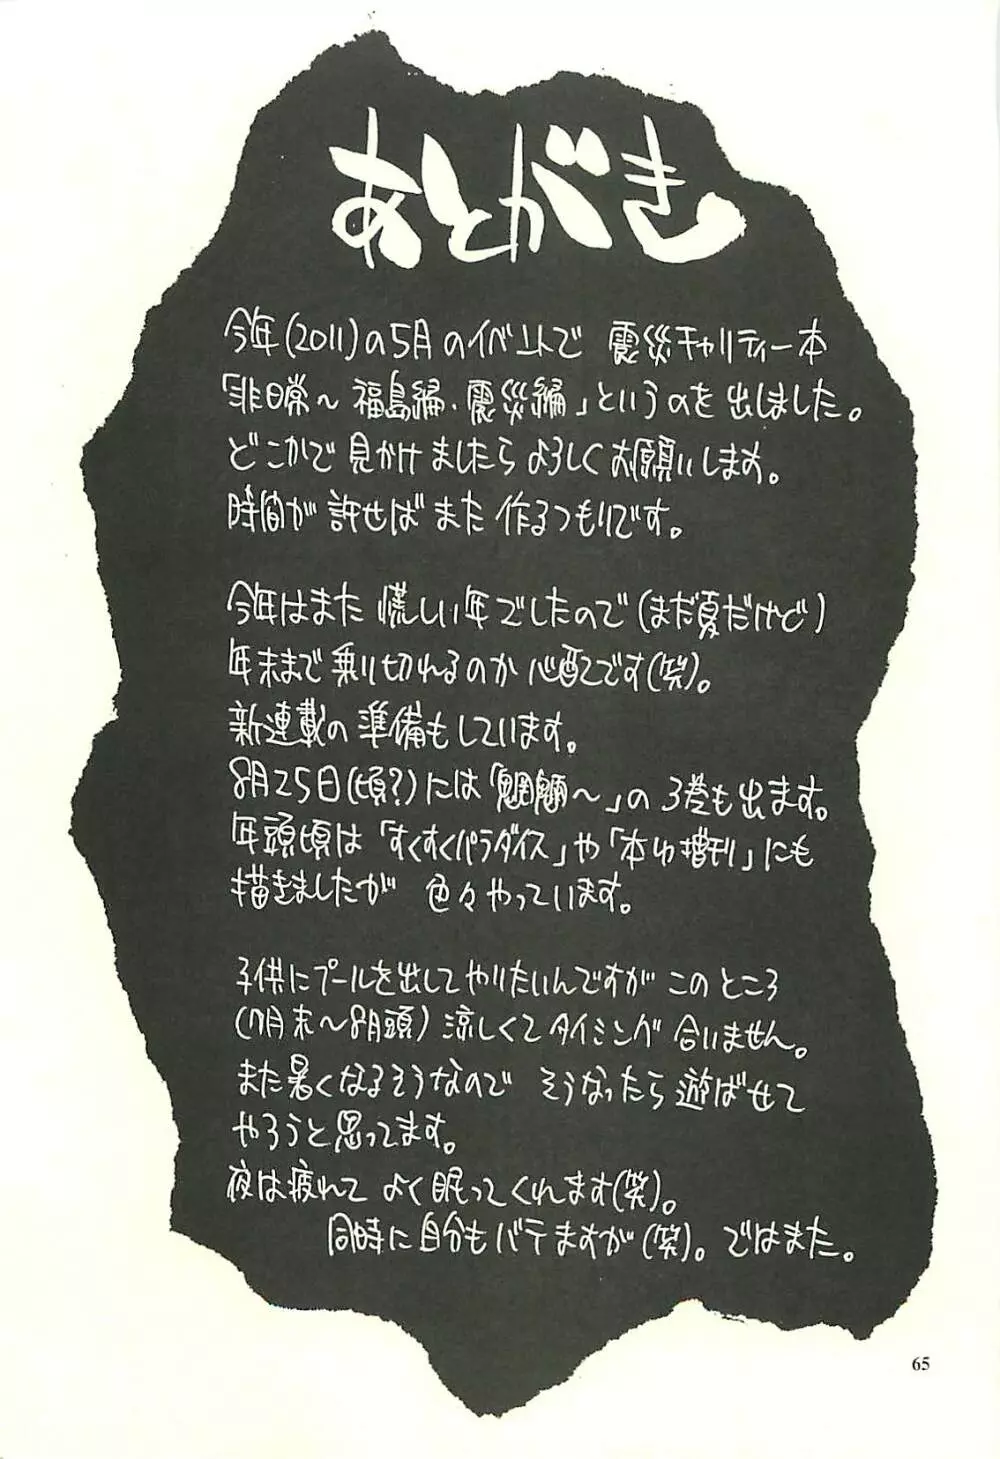 あとがき
今年(2011)の5月のイベントで 震災チャリティー本
「非日常～福島編、震災編」というのを出しました。
どこかで見かけましたらよろしくお願いします。
時間が許せばまた作るつもりです。
今年はまた慌しい年でしたので(まだ夏だけど)
年末まで乗り切れるのか心配です(笑)。
新連載の準備もしています。
8月25日(頃?)には「魍魎～」の3巻も出ます。
年頭頃は「すくすくパラダイス」や「本わ増刊」にも
描きましたが 色々やっています。
子供にプールを出してやりたいんですがこのところ
(7月末～8月頭)涼しくてタイミング合いません。
また暑くなるそうなので そうなったら遊ばせて
やろうと思ってます。
夜は疲れて よく眠ってくれます(笑)。
同時に自分もバテますが(笑)。ではまた。
65